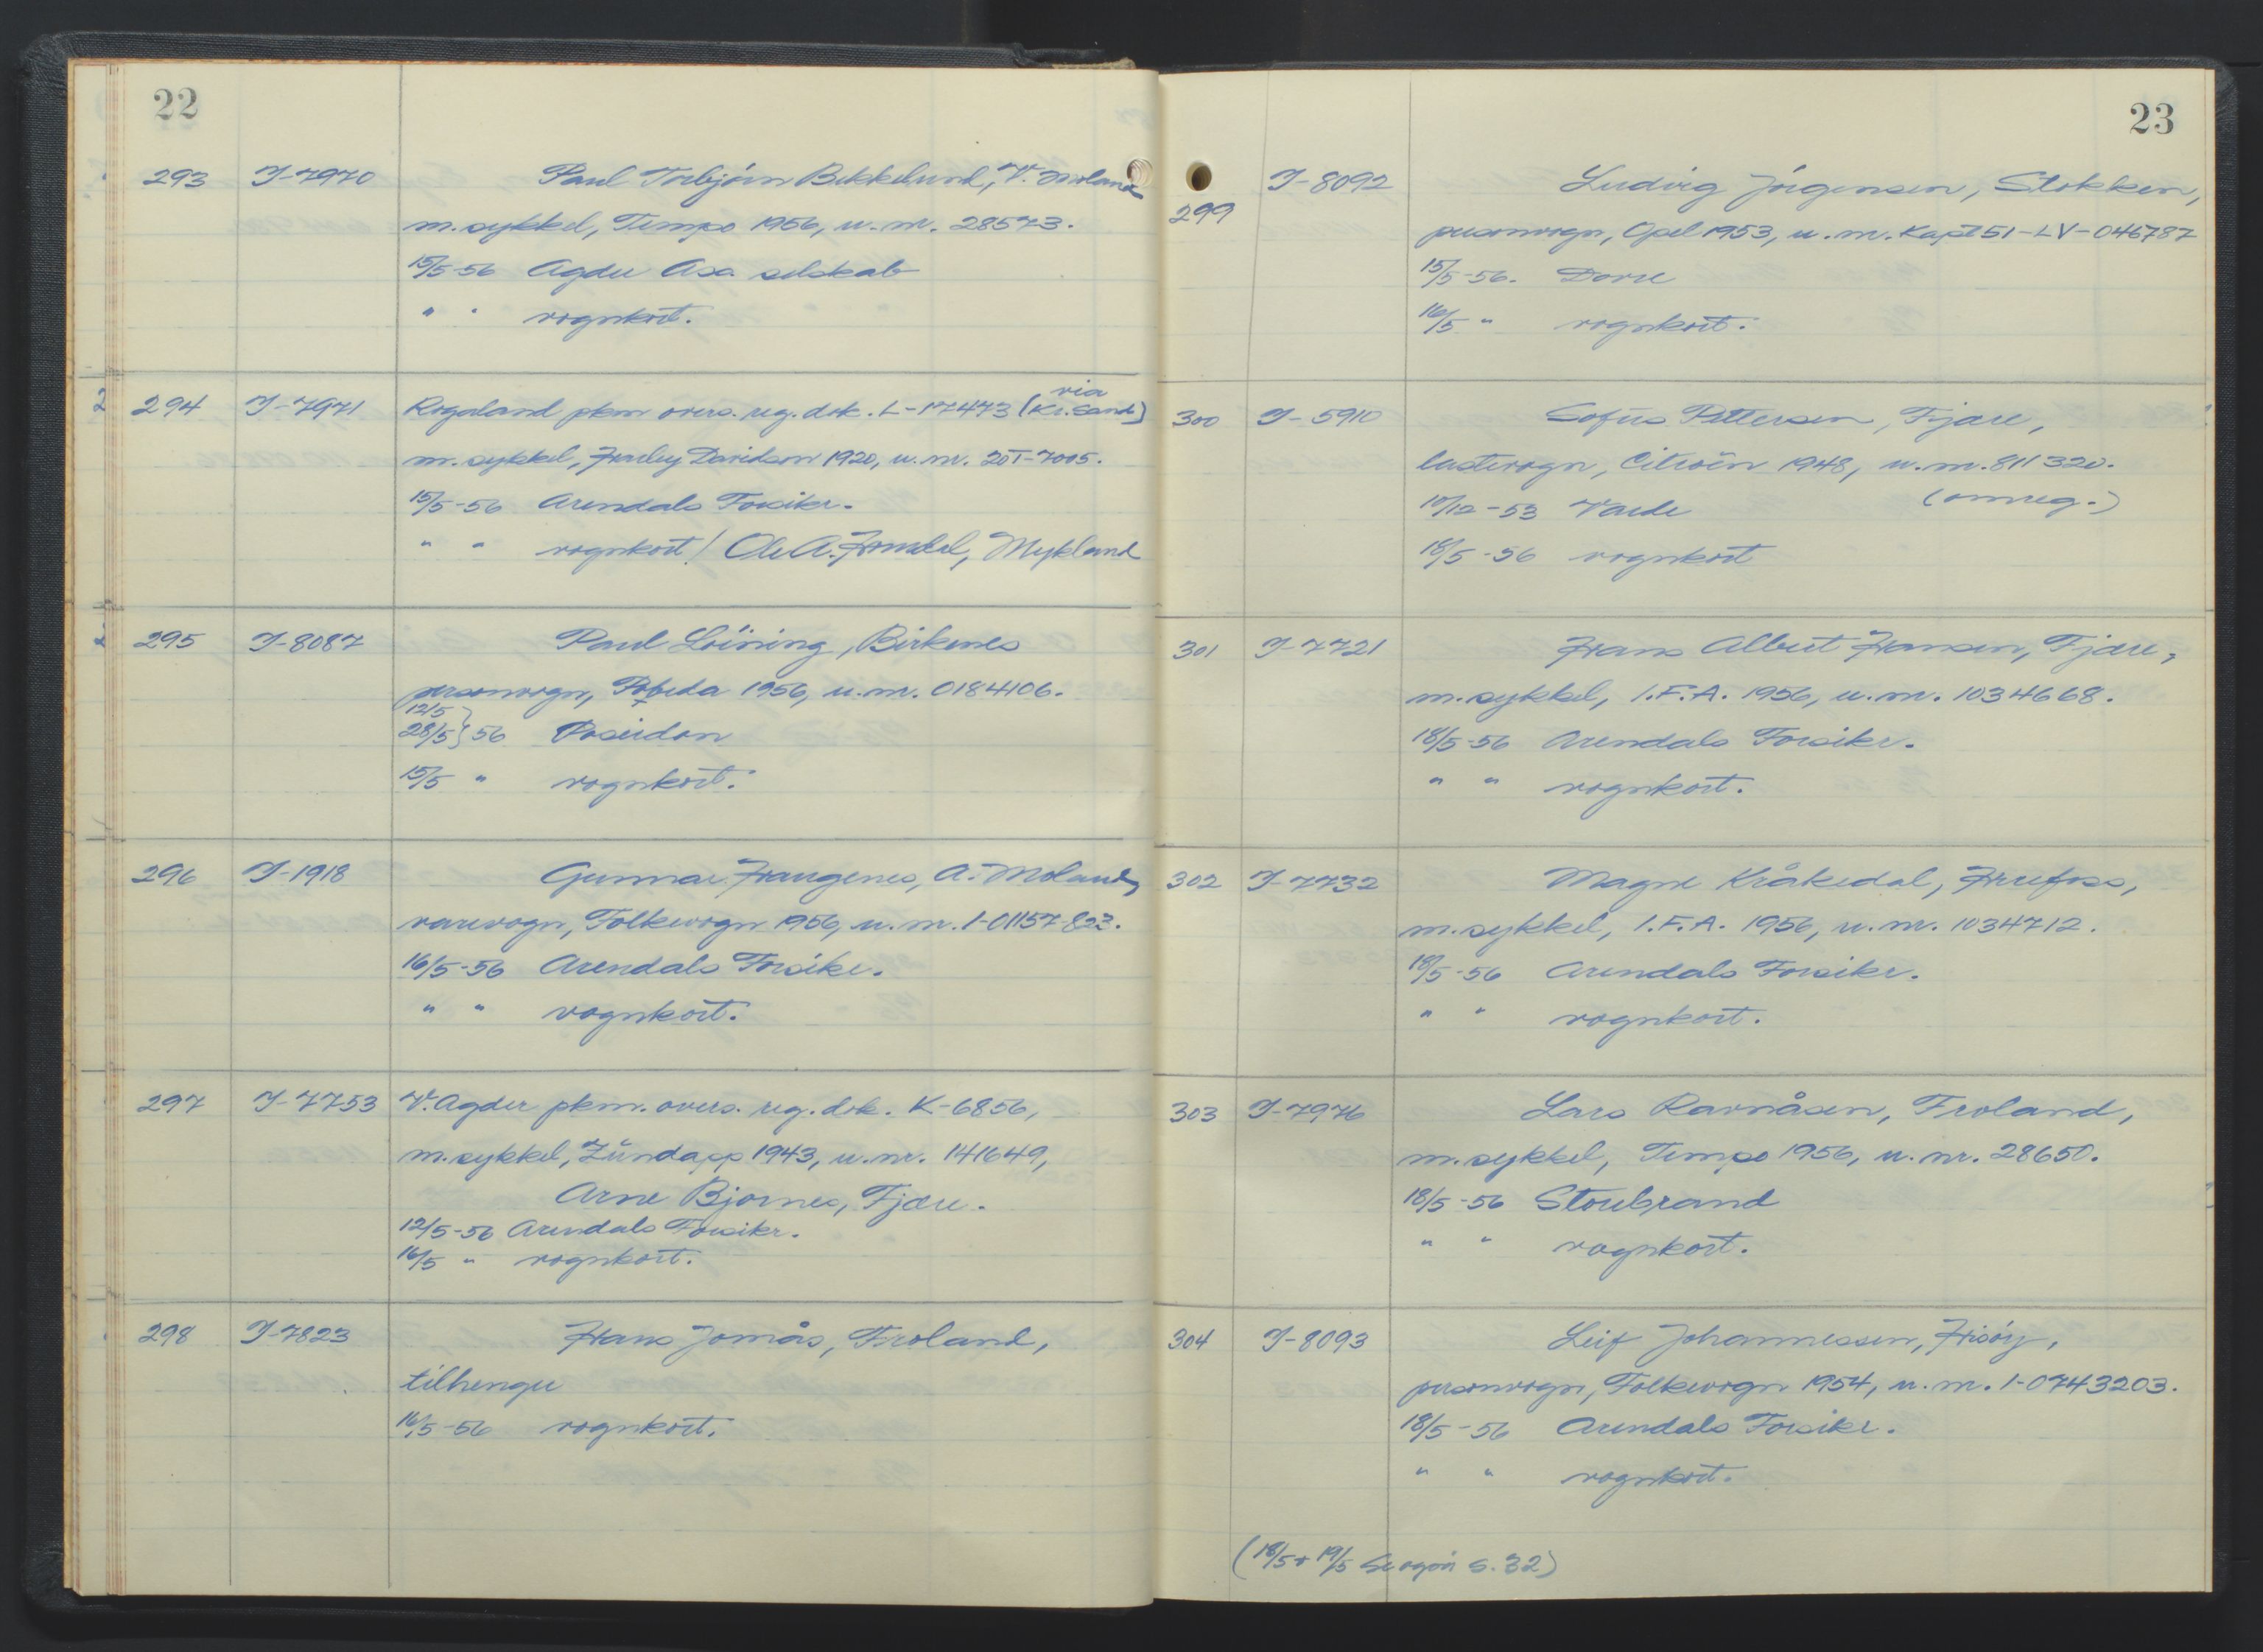 22
293 I-7970 Paul Torbjörn Bekkelund, V. Moland
m.sykkel, Tempo 1956, u. nr. 28573.
15/5-56 Agder Ass. selskab
" " vognkort.
294 I-7971 Rogaland pkm overs. reg. dok. L-17473 (via Kr.sand)
m.sykkel, Harley Davidson 1920, u. nr. 20T-7005.
15/5-56 Arendals Forsikr.
" " vognkort / Ole A. Hamdal, Mykland
295 I-8087 Paul Löining, Birkenes
personvogn, Pobeda 1956, u. nr. 0184106.
12/5
28/5 } 56 Poseidon
15/5 " vognkort.
296 I-1918 Gunnar Haugenes, A. Moland,
varevogn, Folkevogn 1956, u. nr. 1-01157823.
16/5-56 Arendals Forsikr.
" " vognkort.
297 I-7753 V. Agder pkm. overs. reg. dok. K-6856,
m.sykkel, Zündapp 1943, u. nr. 141649,
Arne Bjørnes, Fjære.
12/5-56 Arendals Forsikr.
16/5 " vognkort.
298 I-7823 Hans Jomås, Froland,
tilhenger
16/5-56 vognkort.
23
299 I-8092 Ludvig Jörgensen, Stokken,
personvogn, Opel 1953, u. nr. Kapt 51-LV-046787
15/5-56. Dovre
16/5 " vognkort.
300 I-5910 Sofus Pettersen, Fjære,
lastevogn, Citroën 1948, u. nr. 811320.
10/12-53 Varde (omreg.)
18/5-56 vognkort
301 I-7721 Hans Albert Hansen, Fjære,
m.sykkel, I.F.A. 1956, u. nr. 1034668.
18/5-56 Arendals Forsikr.
" " vognkort.
302 I-7732 Magne Kråkedal, Herefoss,
m.sykkel, I.F.A. 1956, u. nr. 1034712.
18/5-56 Arendals Forsikr.
" " vognkort.
303 I-7976 Lars Ravnåsen, Froland,
m.sykkel, Tempo 1956, u. nr. 28650.
18/5-56 Storebrand
" " vognkort.
304 I-8093 Leif Johannessen, Hisöy,
personvogn, Folkevogn 1954, u. nr. 1-0743203.
18/5-56 Arendals Forsikr.
" " vognkort.
(18/5 + 19/5 Se også s. 32)